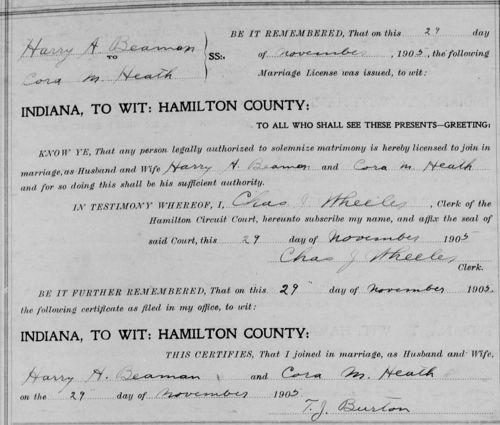 Harry A. Beaman
TO
Cora M. Heath
SS:
BE IT REMEMBERED, That on this 29 day
of November, 1905, the following
Marriage License was issued, to wit:
INDIANA, TO WIT: HAMILTON COUNTY:
TO ALL WHO SHALL SEE THESE PRESENTS—GREETING:
KNOW YE, That any person legally authorized to solemnize matrimony is hereby licensed to join in
marriage, as Husband and Wife Harry A. Beaman and Cora M. Heath
and for so doing this shall be his sufficient authority.
IN TESTIMONY WHEREOF, I, Chas J. Wheeler, Clerk of the
Hamilton Circuit Court, hereunto subscribe my name, and affix the seal of
said Court, this 29 day of November 1905
Chas J Wheeler
Clerk.
BE IT FURTHER REMEMBERED, That on this 29" day of November 1905
the following certificate as filed in my office, to wit:
INDIANA, TO WIT: HAMILTON COUNTY:
THIS CERTIFIES, That I joined in marriage, as Husband and Wife,
Harry A. Beaman and Cora M. Heath
on the 29 day of November 1905
T. J. Burton